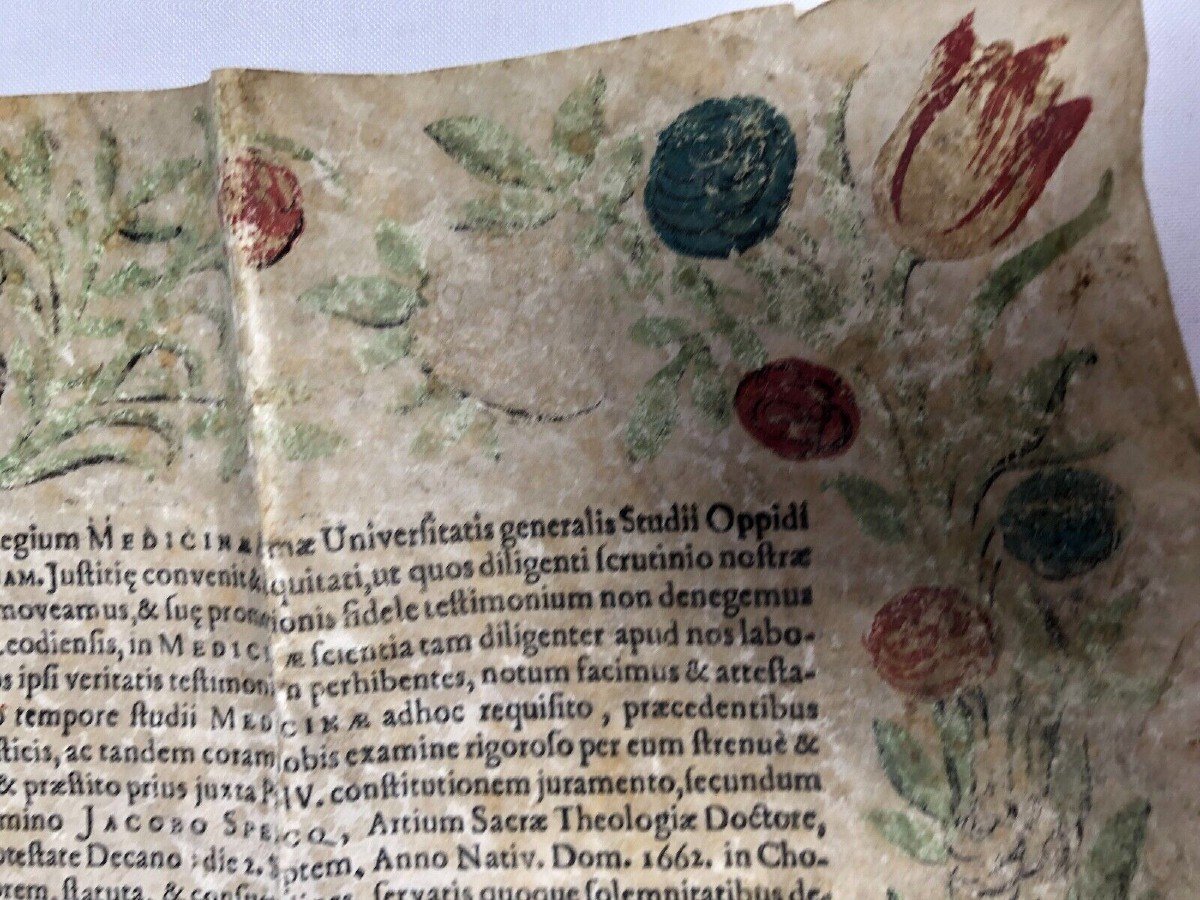 egium MEDICINA mæ Univerſitatis generalis Studii Oppidi
AM. Juſtitię convenit & quitati, ut quos diligenti ſcrutinio noſtræ
moveamus, & ſuę pro ionis fidele teſtimonium non denegemus
codienſis, in MEDICI æ ſcientia tam diligenter apud nos labo-
s ipſi veritatis teſtimoni perhibentes, notum facimus & atteſta-
tempore ſtudii MEDICINÆ adhoc requiſito, præcedentibus
ſticis, ac tandem coram obis examine rigoroſo per eum ſtrenuè &
& præſtito prius juxta IV. conſtitutionem juramento, ſecundum
mino JACOBO SPEECQ, Artium Sacræ Theologiæ Doctore,
oteſtate Decano : die 2. Septem, Anno Nativ. Dom. 1662. in Cho-
orem, ſtatuta, & ſervatis quoque ſolemnitatibus de-